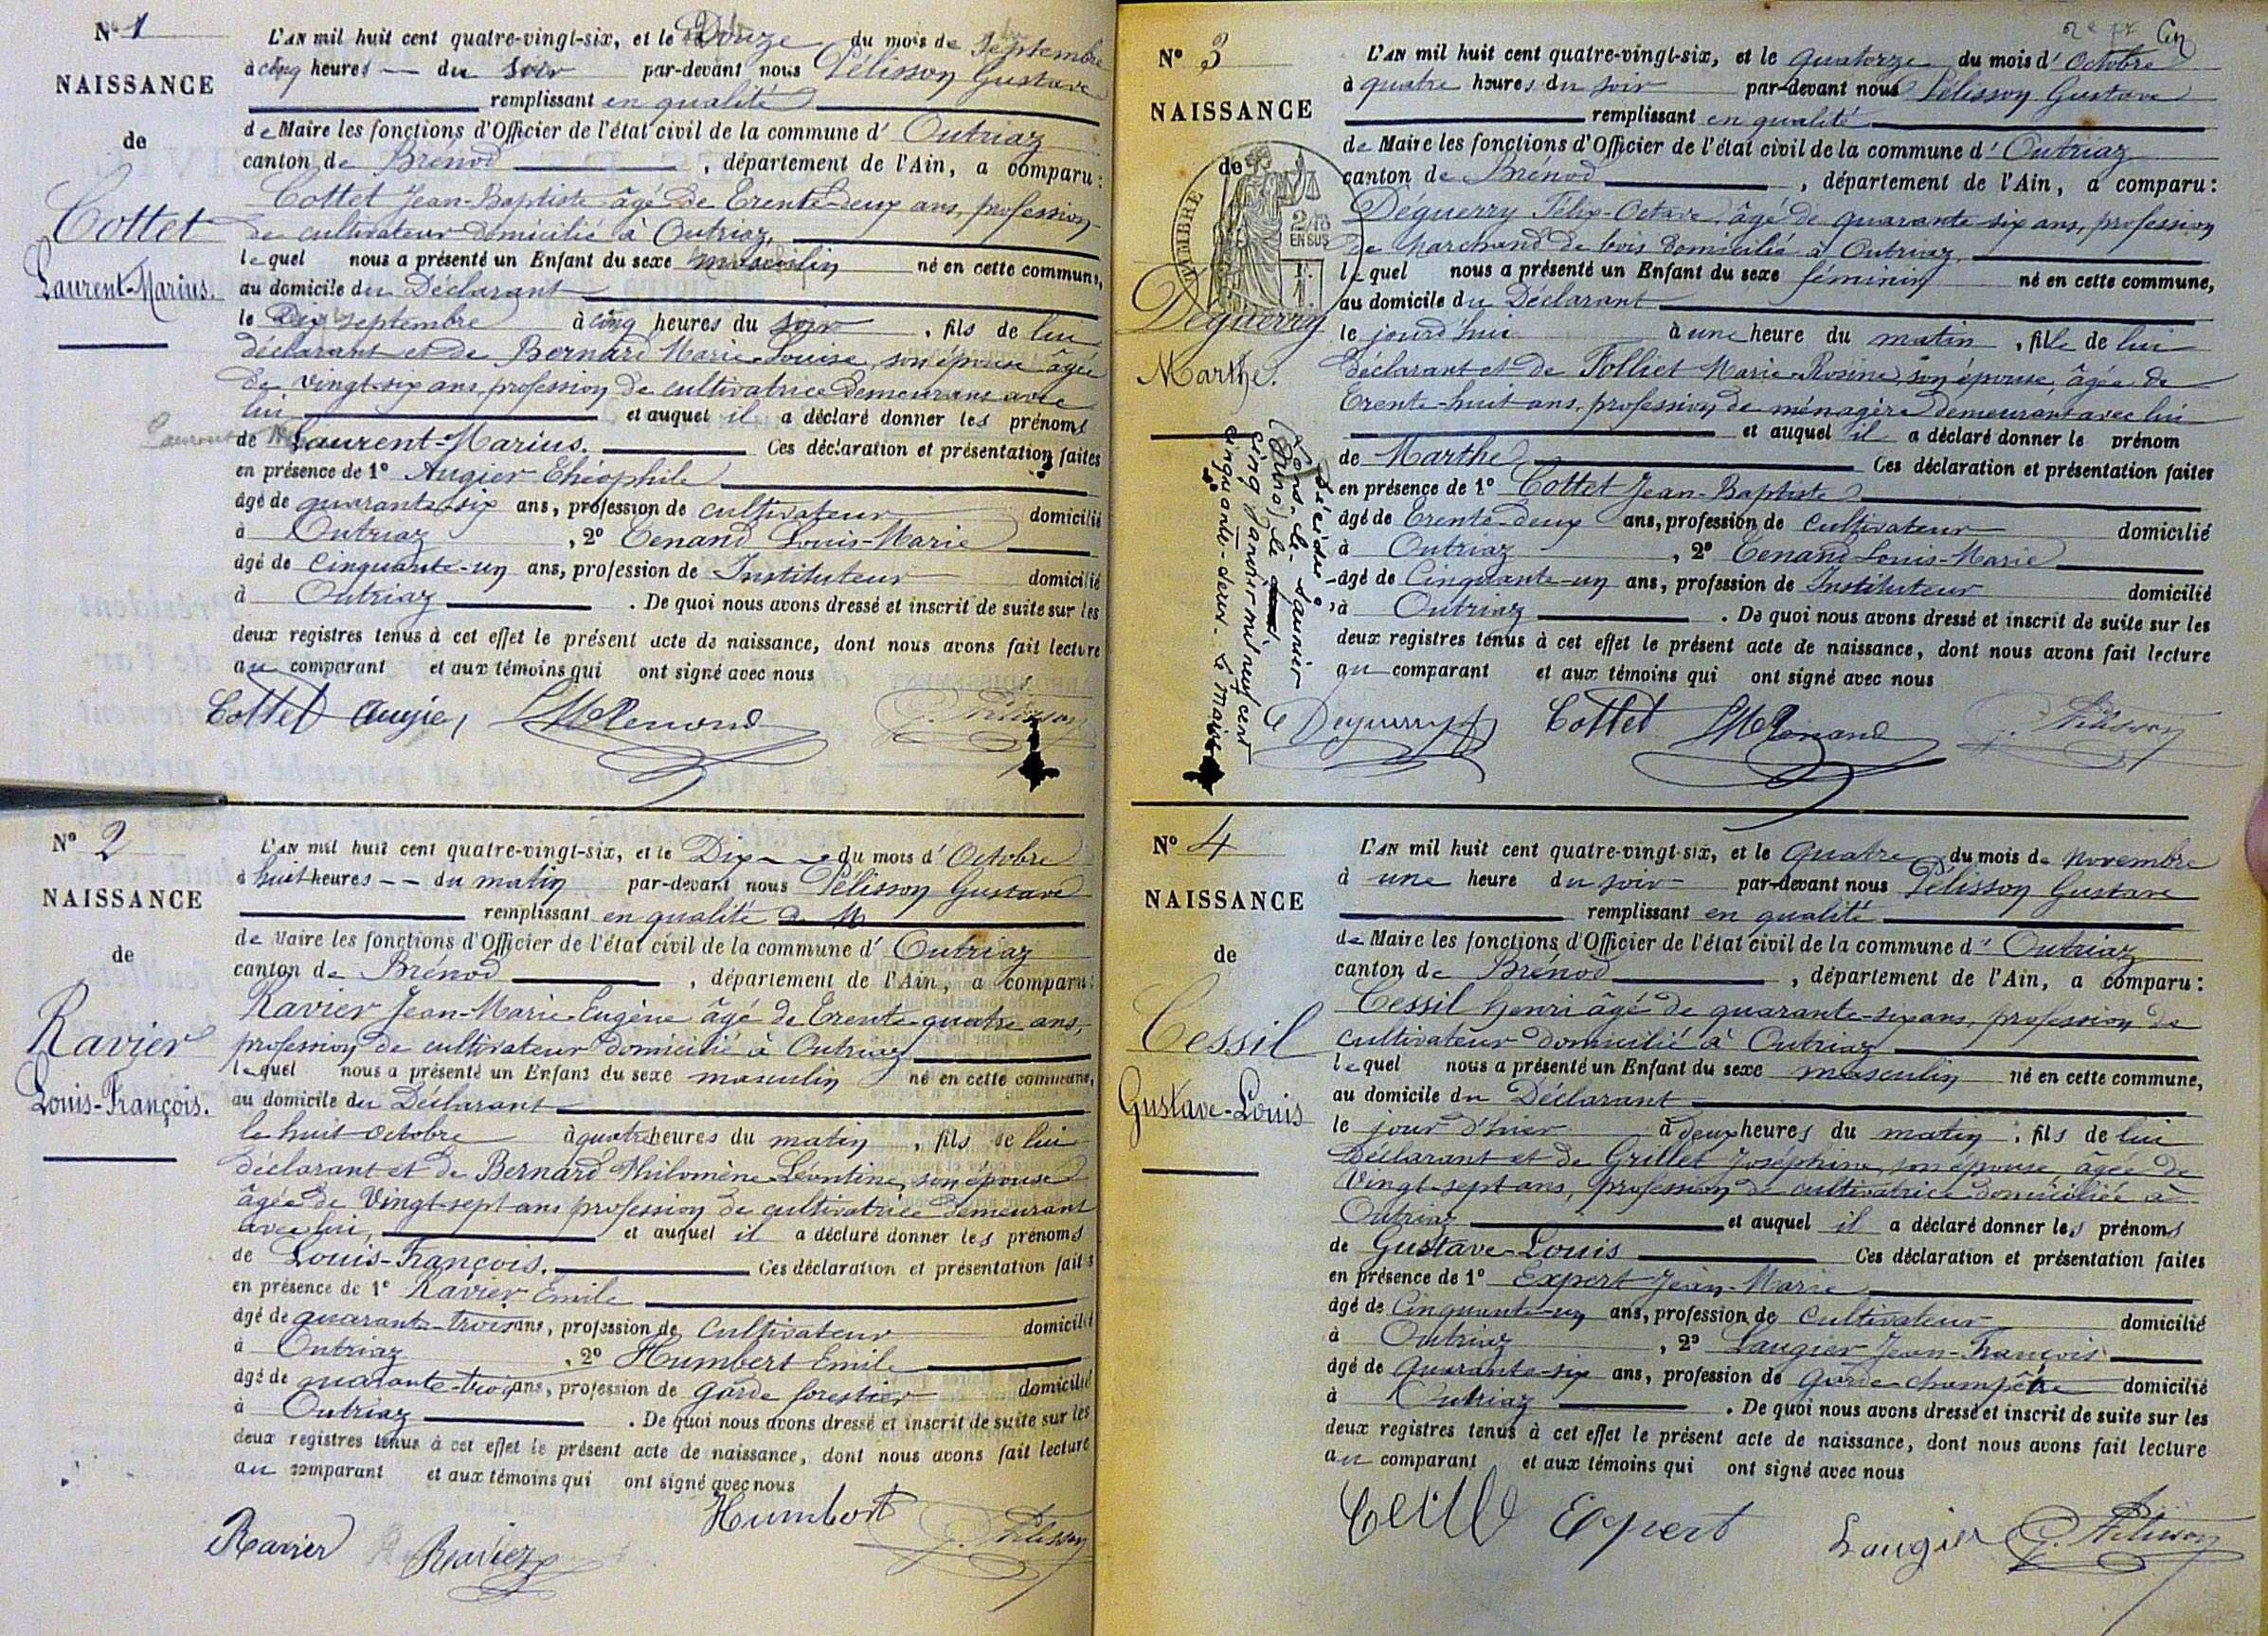 N° 1
NAISSANCE
de
Cottet
Laurent-Marius.
L'AN mil huit cent quatre-vingt-six, et le Douze du mois de Septembre
à cinq heures du soir par-devant nous Pélisson Gustave
remplissant en qualité
de Maire les fonctions d'Officier de l'état civil de la commune d' Outriaz
canton de Brénod, département de l'Ain, a comparu:
Cottet Jean-Baptiste âgé de Trente-deux ans, profession
de cultivateur domicilié à Outriaz,
lequel nous a présenté un Enfant du sexe masculin né en cette commune,
au domicile du Déclarant
le Dix septembre à cinq heures du soir, fils de lui
déclarant et de Bernard Marie-Louise, son épouse âgée
de vingt-six ans, profession de cultivatrice demeurant avec
lui et auquel il a déclaré donner les prénoms
de Laurent-Marius. Ces déclaration et présentation faites
en présence de 1° Augier Théophile
âgé de quarante-six ans, profession de cultivateur domicilié
à Outriaz, 2° Tenand Louis-Marie
âgé de Cinquante-un ans, profession de Instituteur domicilié
à Outriaz. De quoi nous avons dressé et inscrit de suite sur les
deux registres tenus à cet effet le présent acte de naissance, dont nous avons fait lecture
au comparant et aux témoins qui ont signé avec nous
Cottet Augier LMTenand G. Pélisson
N° 2
NAISSANCE
de
Ravier
Louis-François.
L'AN mil huit cent quatre-vingt-six, et le Dix du mois d' Octobre
à huit heures du matin par-devant nous Pélisson Gustave
remplissant en qualité de M
de Maire les fonctions d'Officier de l'état civil de la commune d' Outriaz
canton de Brénod, département de l'Ain, a comparu:
Ravier Jean-Marie-Eugène âgé de Trente-quatre ans,
profession de cultivateur domicilié à Outriaz
lequel nous a présenté un Enfant du sexe masculin né en cette commune,
au domicile du Déclarant
le huit Octobre à quatre heures du matin, fils de lui
déclarant et de Bernard Philomène Léontine, son épouse
âgée de Vingt-sept ans profession de cultivatrice demeurant
avec lui, et auquel il a déclaré donner les prénoms
de Louis-François. Ces déclaration et présentation faites
en présence de 1° Ravier Emile
âgé de quarante-trois ans, profession de Cultivateur domicilié
à Outriaz, 2° Humbert Emile
âgé de quarante-trois ans, profession de garde forestier domicilié
à Outriaz. De quoi nous avons dressé et inscrit de suite sur les
deux registres tenus à cet effet le présent acte de naissance, dont nous avons fait lecture
au comparant et aux témoins qui ont signé avec nous
Ravier Ravier Humbert G. Pélisson
N° 3
NAISSANCE
de
TIMBRE
EN SUS
Déguerry
Marthe.
L'AN mil huit cent quatre-vingt-six, et le quatorze du mois d' Octobre
à quatre heures du soir par-devant nous Pélisson Gustave
remplissant en qualité
de Maire les fonctions d'Officier de l'état civil de la commune d' Outriaz
canton de Brénod, département de l'Ain, a comparu:
Déguerry Félix-Octave, âgé de quarante-six ans, profession
de Marchand de bois domicilié à Outriaz,
lequel nous a présenté un Enfant du sexe féminin né en cette commune,
au domicile du Déclarant
le jourd'hui à une heure du matin, fille de lui
déclarant et de Folliet Marie-Rosine, son épouse, âgée de
Trente-huit ans, profession de ménagère demeurant avec lui
et auquel il a déclaré donner le prénom
de Marthe Ces déclaration et présentation faites
en présence de 1° Cottet Jean-Baptiste
âgé de Trente-deux ans, profession de Cultivateur domicilié
à Outriaz, 2° Tenand Louis-Marie
âgé de Cinquante-un ans, profession de Instituteur domicilié
à Outriaz. De quoi nous avons dressé et inscrit de suite sur les
deux registres tenus à cet effet le présent acte de naissance, dont nous avons fait lecture
au comparant et aux témoins qui ont signé avec nous
Décédée à
Lons-le-Saunier
(Jura) le
cinq Janvier mil neuf cent
cinquante-deux. Le Maire
Deguerry Cottet LMTenand G. Pélisson
N° 4
NAISSANCE
de
Cessil
Gustave-Louis
L'AN mil huit cent quatre-vingt-six, et le Quatre du mois de novembre
à une heure du soir par-devant nous Pélisson Gustave
remplissant en qualité
de Maire les fonctions d'Officier de l'état civil de la commune d' Outriaz
canton de Brénod, département de l'Ain, a comparu:
Cessil henri âgé de quarante-six ans, profession de
cultivateur domicilié à Outriaz
lequel nous a présenté un Enfant du sexe masculin né en cette commune,
au domicile du Déclarant
le jour d'hier à deux heures du matin, fils de lui
Déclarant et de Grillet Joséphine, son épouse, âgée de
Vingt-sept ans, profession de cultivatrice domiciliée à
Outriaz et auquel il a déclaré donner les prénoms
de Gustave-Louis Ces déclaration et présentation faites
en présence de 1° Expert Jean-Marie
âgé de Cinquante-un ans, profession de Cultivateur domicilié
à Outriaz, 2° Laugier Jean-François
âgé de Quarante-six ans, profession de Garde-champêtre domicilié
à Outriaz. De quoi nous avons dressé et inscrit de suite sur les
deux registres tenus à cet effet le présent acte de naissance, dont nous avons fait lecture
au comparant et aux témoins qui ont signé avec nous
Expert Laugier G. Pélisson